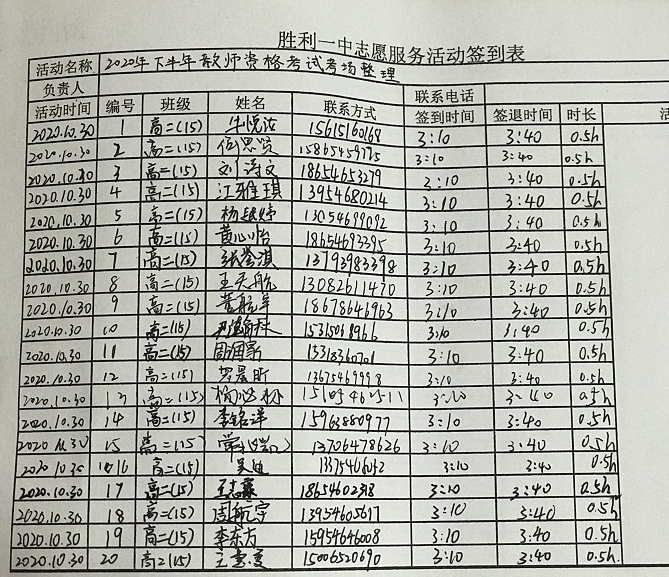 胜利一中志愿服务活动签到表
活动名称 2020年下半年教师资格考试考场整理
负责人 联系电话
活动时间 编号 班级 姓名 联系方式 签到时间 签退时间 时长 活
2020.10.30 1 高二(15) 牛悦洁 15615160168 3:10 3:40 0.5h
2020.10.30 2 高二(15) 伯思贤 15865459775 3:10 3:40 0.5h
2020.10.30 3 高二(15) 刘诗文 18654653279 3:10 3:40 0.5h
2020.10.30 4 高二(15) 江雅琪 13954680214 3:10 3:40 0.5h
2020.10.30 5 高二(15) 杨 13054699092 3:10 3:40 0.5h
2020.10.30 6 高二(15) 黄心怡 18654693395 3:10 3:40 0.5h
2020.10.30 7 高二(15) 张 淇 13793983398 3:10 3:40 0.5h
2020.10.30 8 高二(15) 王天航 13082611470 3:10 3:40 0.5h
2020.10.30 9 高二(15) 18678646963 3:10 3:40 0.5h
2020.10.30 10 高二(15) 3:10 3:40 0.5h
2020.10.30 11 高二(15) 15318360701 3:10 3:40 0.5h
2020.10.30 12 高二(15) 13675469998 3:10 3:40 0.5h
2020.10.30 13 高二(15) 3:10 3:40 0.5h
2020.10.30 14 高二(15) 李铭洋 15963880977 3:10 3:40 0.5h
2020 15 高二(15) 13706478626 3:10 3:40 0.5h
2020 10.30 16 高二(15) 吴迪 3:10 3:40 0.5h
2020.10.30 17 高二(15) 3:10 3:40 0.5h
2020.10.30 18 高二(15) 周航宇 13954605617 3:10 3:40 0.5h
2020.10.30 19 高二(15) 李东方 15954646008 3:10 3:40 0.5h
2020.10.30 20 高二(15) 15006520690 3:10 3:40 0.5h